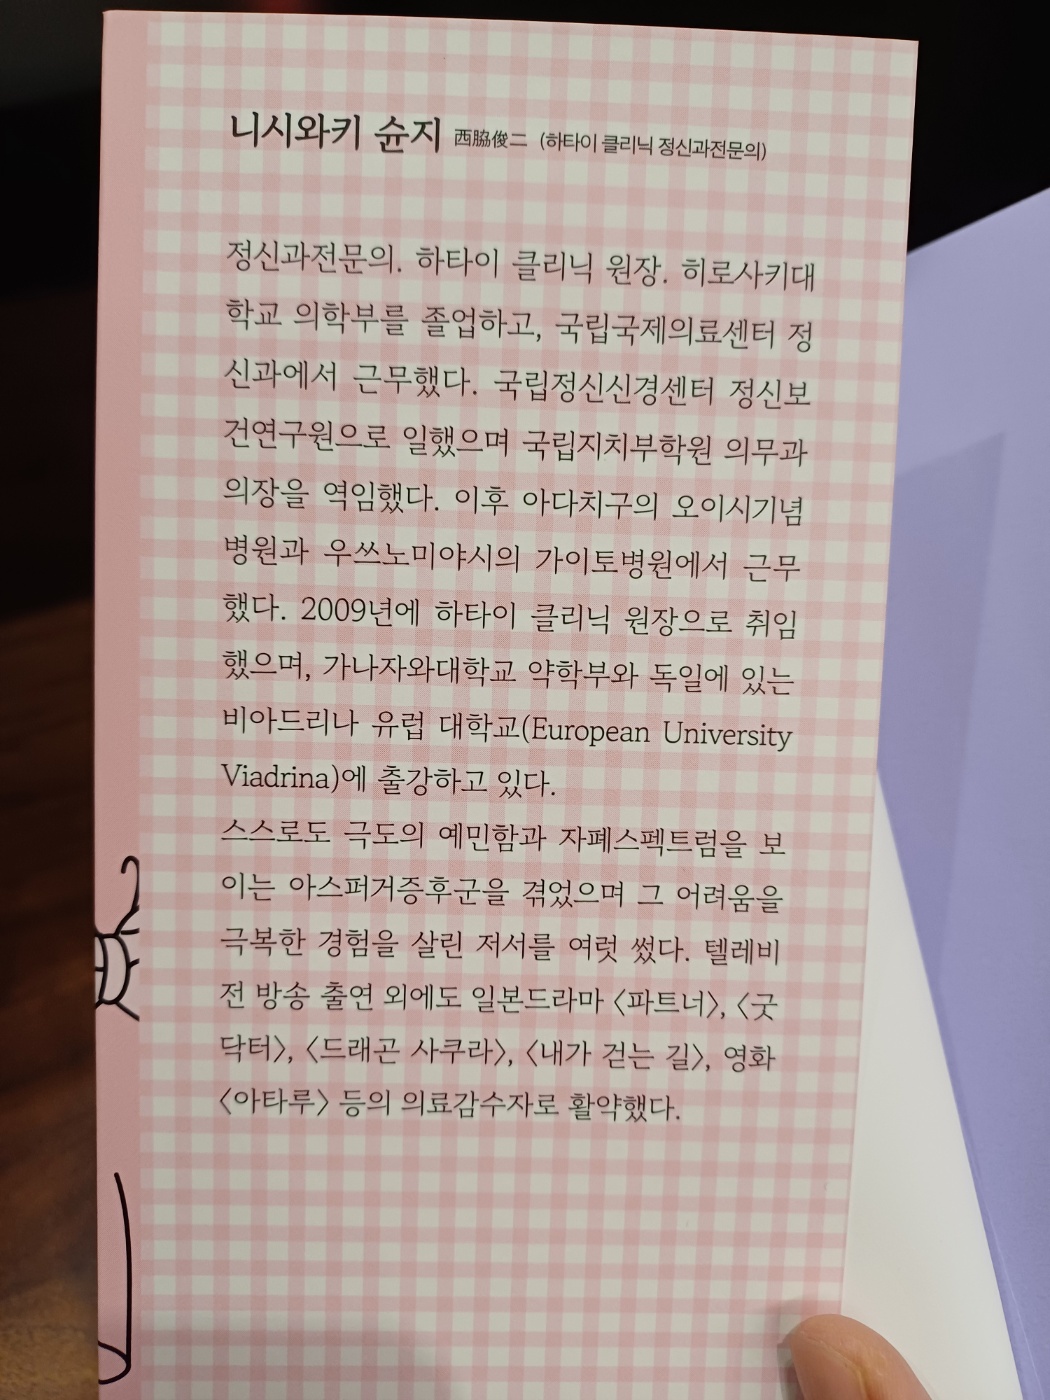 니시와키 슌지 西脇俊二 (하타이 클리닉 정신과전문의)
정신과전문의. 하타이 클리닉 원장. 히로사키대
학교 의학부를 졸업하고, 국립국제의료센터 정
신과에서 근무했다. 국립정신신경센터 정신보
건연구원으로 일했으며 국립지치부학원 의무과
의장을 역임했다. 이후 아다치구의 오이시기념
병원과 우쓰노미야시의 가이토병원에서 근무
했다. 2009년에 하타이 클리닉 원장으로 취임
했으며, 가나자와대학교 약학부와 독일에 있는
비아드리나 유럽 대학교(European University
Viadrina)에 출강하고 있다.
스스로도 극도의 예민함과 자폐스펙트럼을 보
이는 아스퍼거증후군을 겪었으며 그 어려움을
극복한 경험을 살린 저서를 여럿 썼다. 텔레비
전 방송 출연 외에도 일본드라마 〈파트너〉, 〈굿
닥터〉, 〈드래곤 사쿠라〉, 〈내가 걷는 길〉, 영화
〈아타루〉 등의 의료감수자로 활약했다.